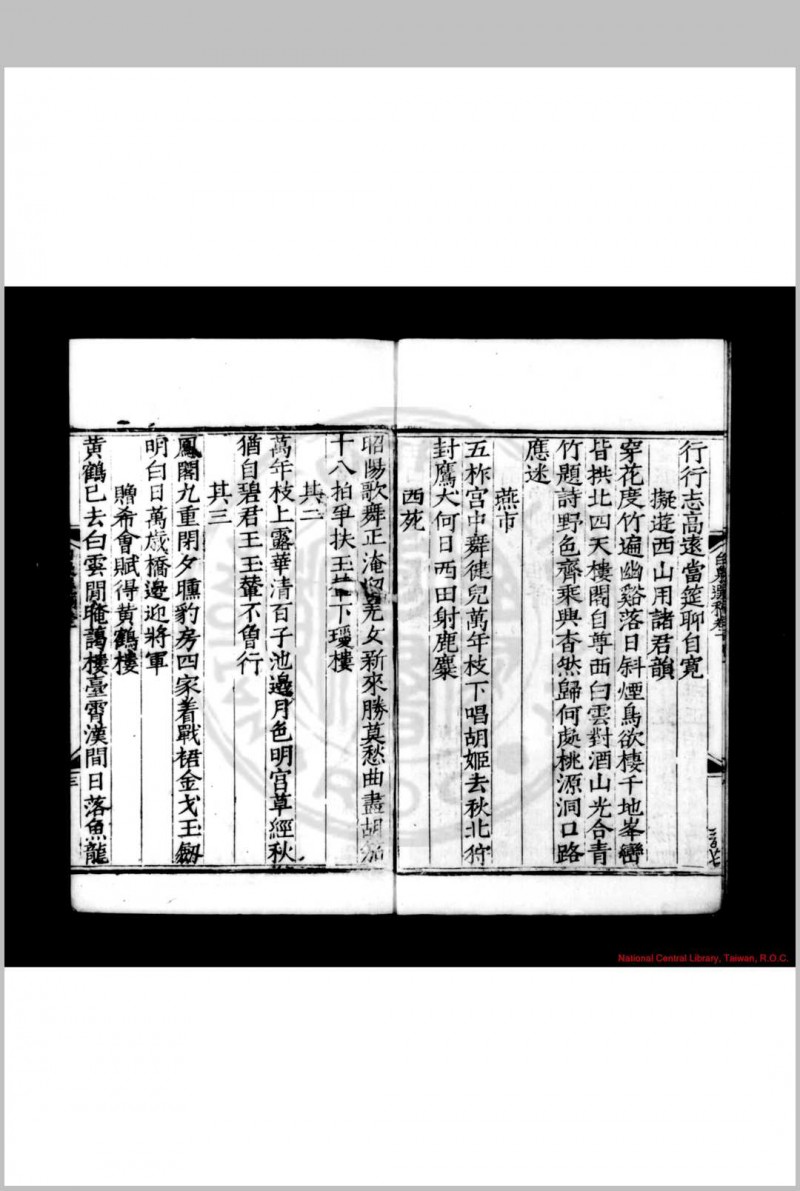 行行志高遠當筵聊自寬
擬遊西山用諸君韻
穿花度竹遍幽谿落日斜煙鳥欲棲千地峯巒
皆拱北四天樓閣自尊西白雲對酒山光合青
竹題詩野色齊乘興杳然歸何處桃源洞口路
應迷
燕市
五柞宮中舞健兒萬年枝下唱胡姬去秋北狩
封鷹犬何日西田射鹿麋
西苑
昭陽歌舞正淹留羌女新來勝莫愁曲盡胡笳
十八拍爭扶玉輦下瓊樓
其二
萬年枝上露華清百子池邊月色明宮草經秋
猶自碧君王玉輦不魯行
其三
鳳閣九重閉夕曛豹房四家着戰裙金戈玉劒
明白日萬歲橋邊迎將軍
贈希會賦得黃鶴樓
黃鶴已去白雲閒晻藹樓臺霄漢間日落魚龍
三
National Central Library, Taiwan, R.O.C.